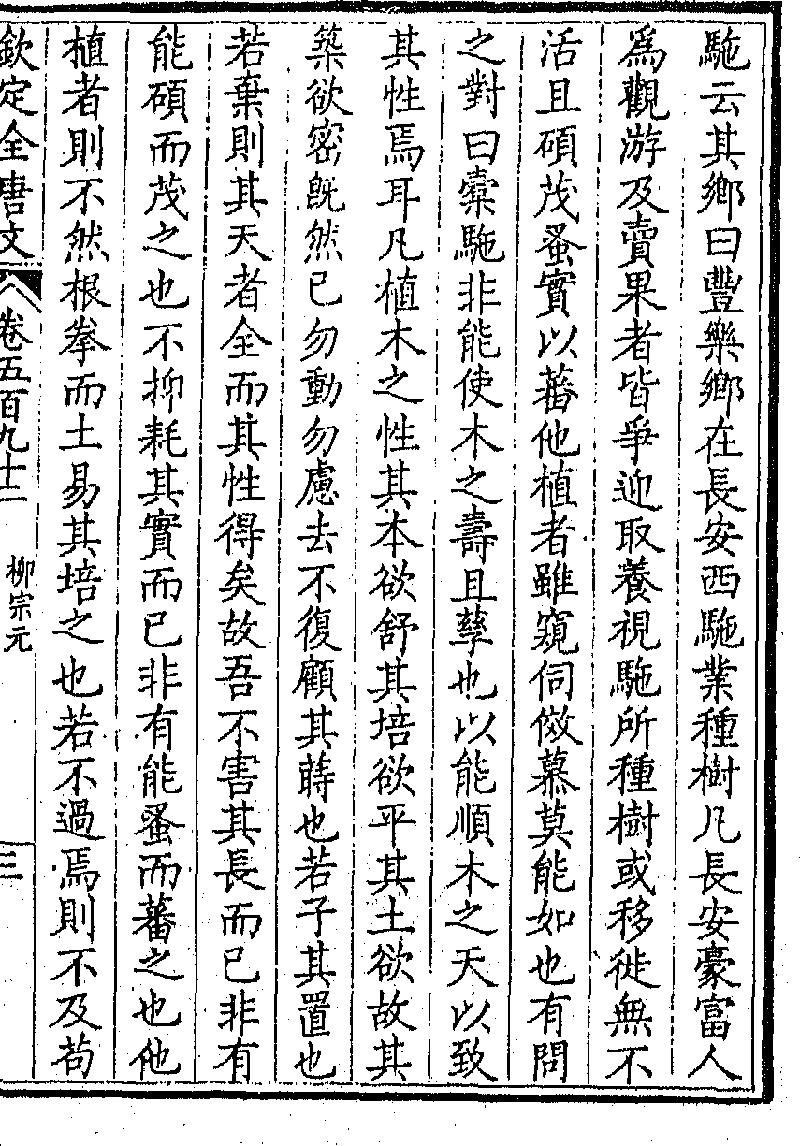 駞云其鄉曰豐樂鄉在長安西駞業種樹凡長安豪富人
爲觀游及賣果者皆爭迎取養視駞所種樹或移徙無不
活且碩茂蚤實以蕃他植者雖窺伺傚慕莫能如也有問
之對曰橐駞非能使木之壽且孳也以能順木之天以致
其性焉耳凡植木之性其本欲舒其培欲平其土欲故其
築欲密旣然已勿動勿慮去不復顧其蒔也若子其置也
若棄則其天者全而其性得矣故吾不害其長而已非有
能碩而茂之也不抑耗其實而已非有能蚤而蕃之也他
植者則不然根拳而土易其培之也若不過焉則不及苟
欽定全唐文 卷五百九十二 柳宗元 三